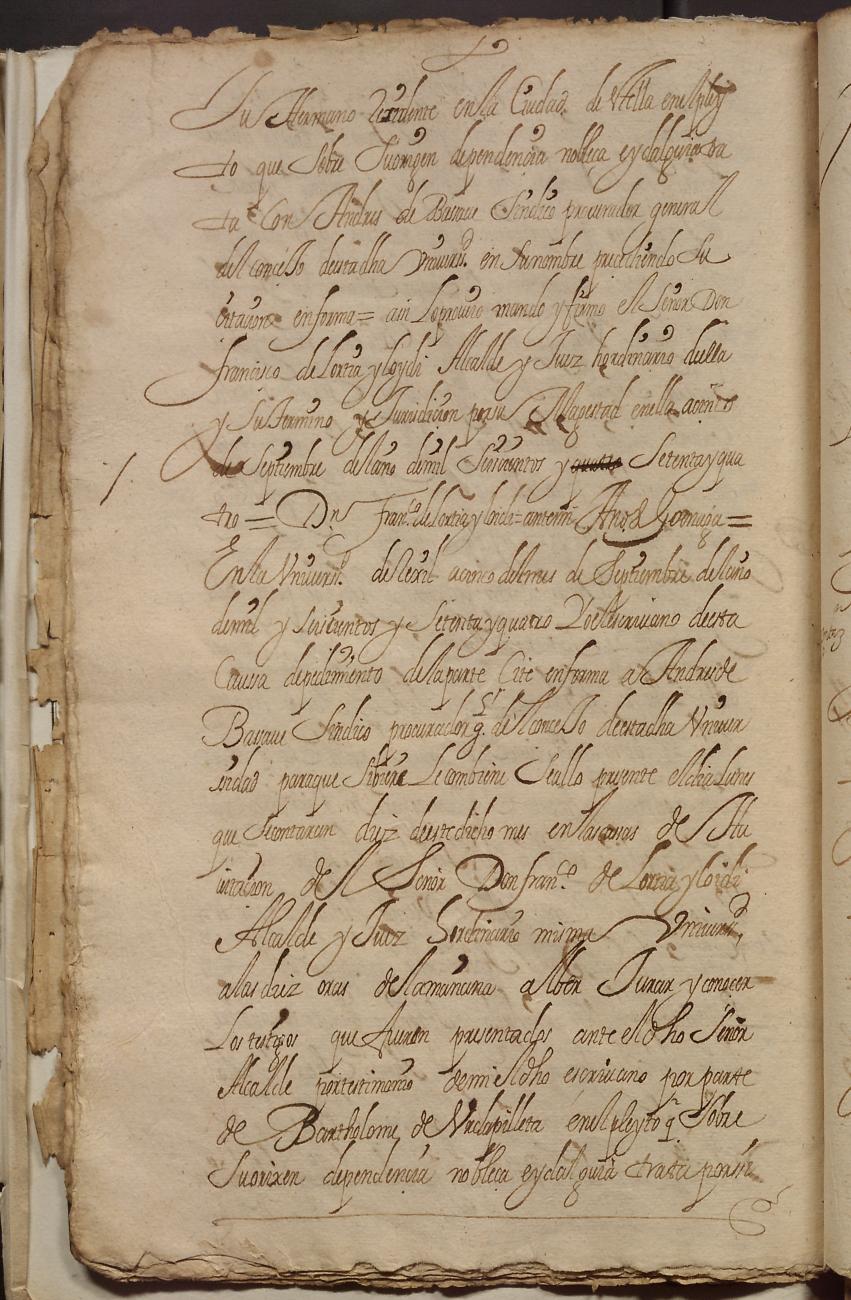 Su Hermano Residente en la Ciudad de Utilla en el pley
to que sobre Su origen dependencia nobleça e ydalguia tra
ta Con Andres de Basaue Sindico procurador general
del conçejo desta dha Vniuersd. en Su nombre precediendo Su
citacion en forma = assi Lo proueio mando y firmo el Señor Don
francisco de Lortia y loydi Alcalde y Juez hordinario della
y Su termino y Jurisdicion por su Magestad en ella a cinco
de Septiembre del año de mil Seiscientos y quatro Setenta y qua
tro = Dn Franco. de Lortia y loidi = ante mi
En la Vniuersd. de Lexil a cinco del mes de Septiembre del año
de mil y Seiscientos y Setenta y quatro Yo el escriuano desta
Caussa de pedimiento de la parte Cite en forma a Andres de
Basaue Sindico procurador gl. del conçejo de esta dha Vniuer
sidad para que si biere Le combiene Se alle presente el dia Lunes
que Se contaran diez de este dicho mes en las casas de Abi
tacion de el Señor Don franco. de Lortia y loidi
Alcalde y Juez hordinario misma Vniuersd.
a las diez oras de la mañana a lber Jurar y conocer
Los testigos que fueren presentados ante el dho Señor
Alcalde por testimonio de mi el dho escriuano por parte
de Bartholome de en el pleyto q. Sobre
Su orixen dependencia nobleça e ydalguia trata por si